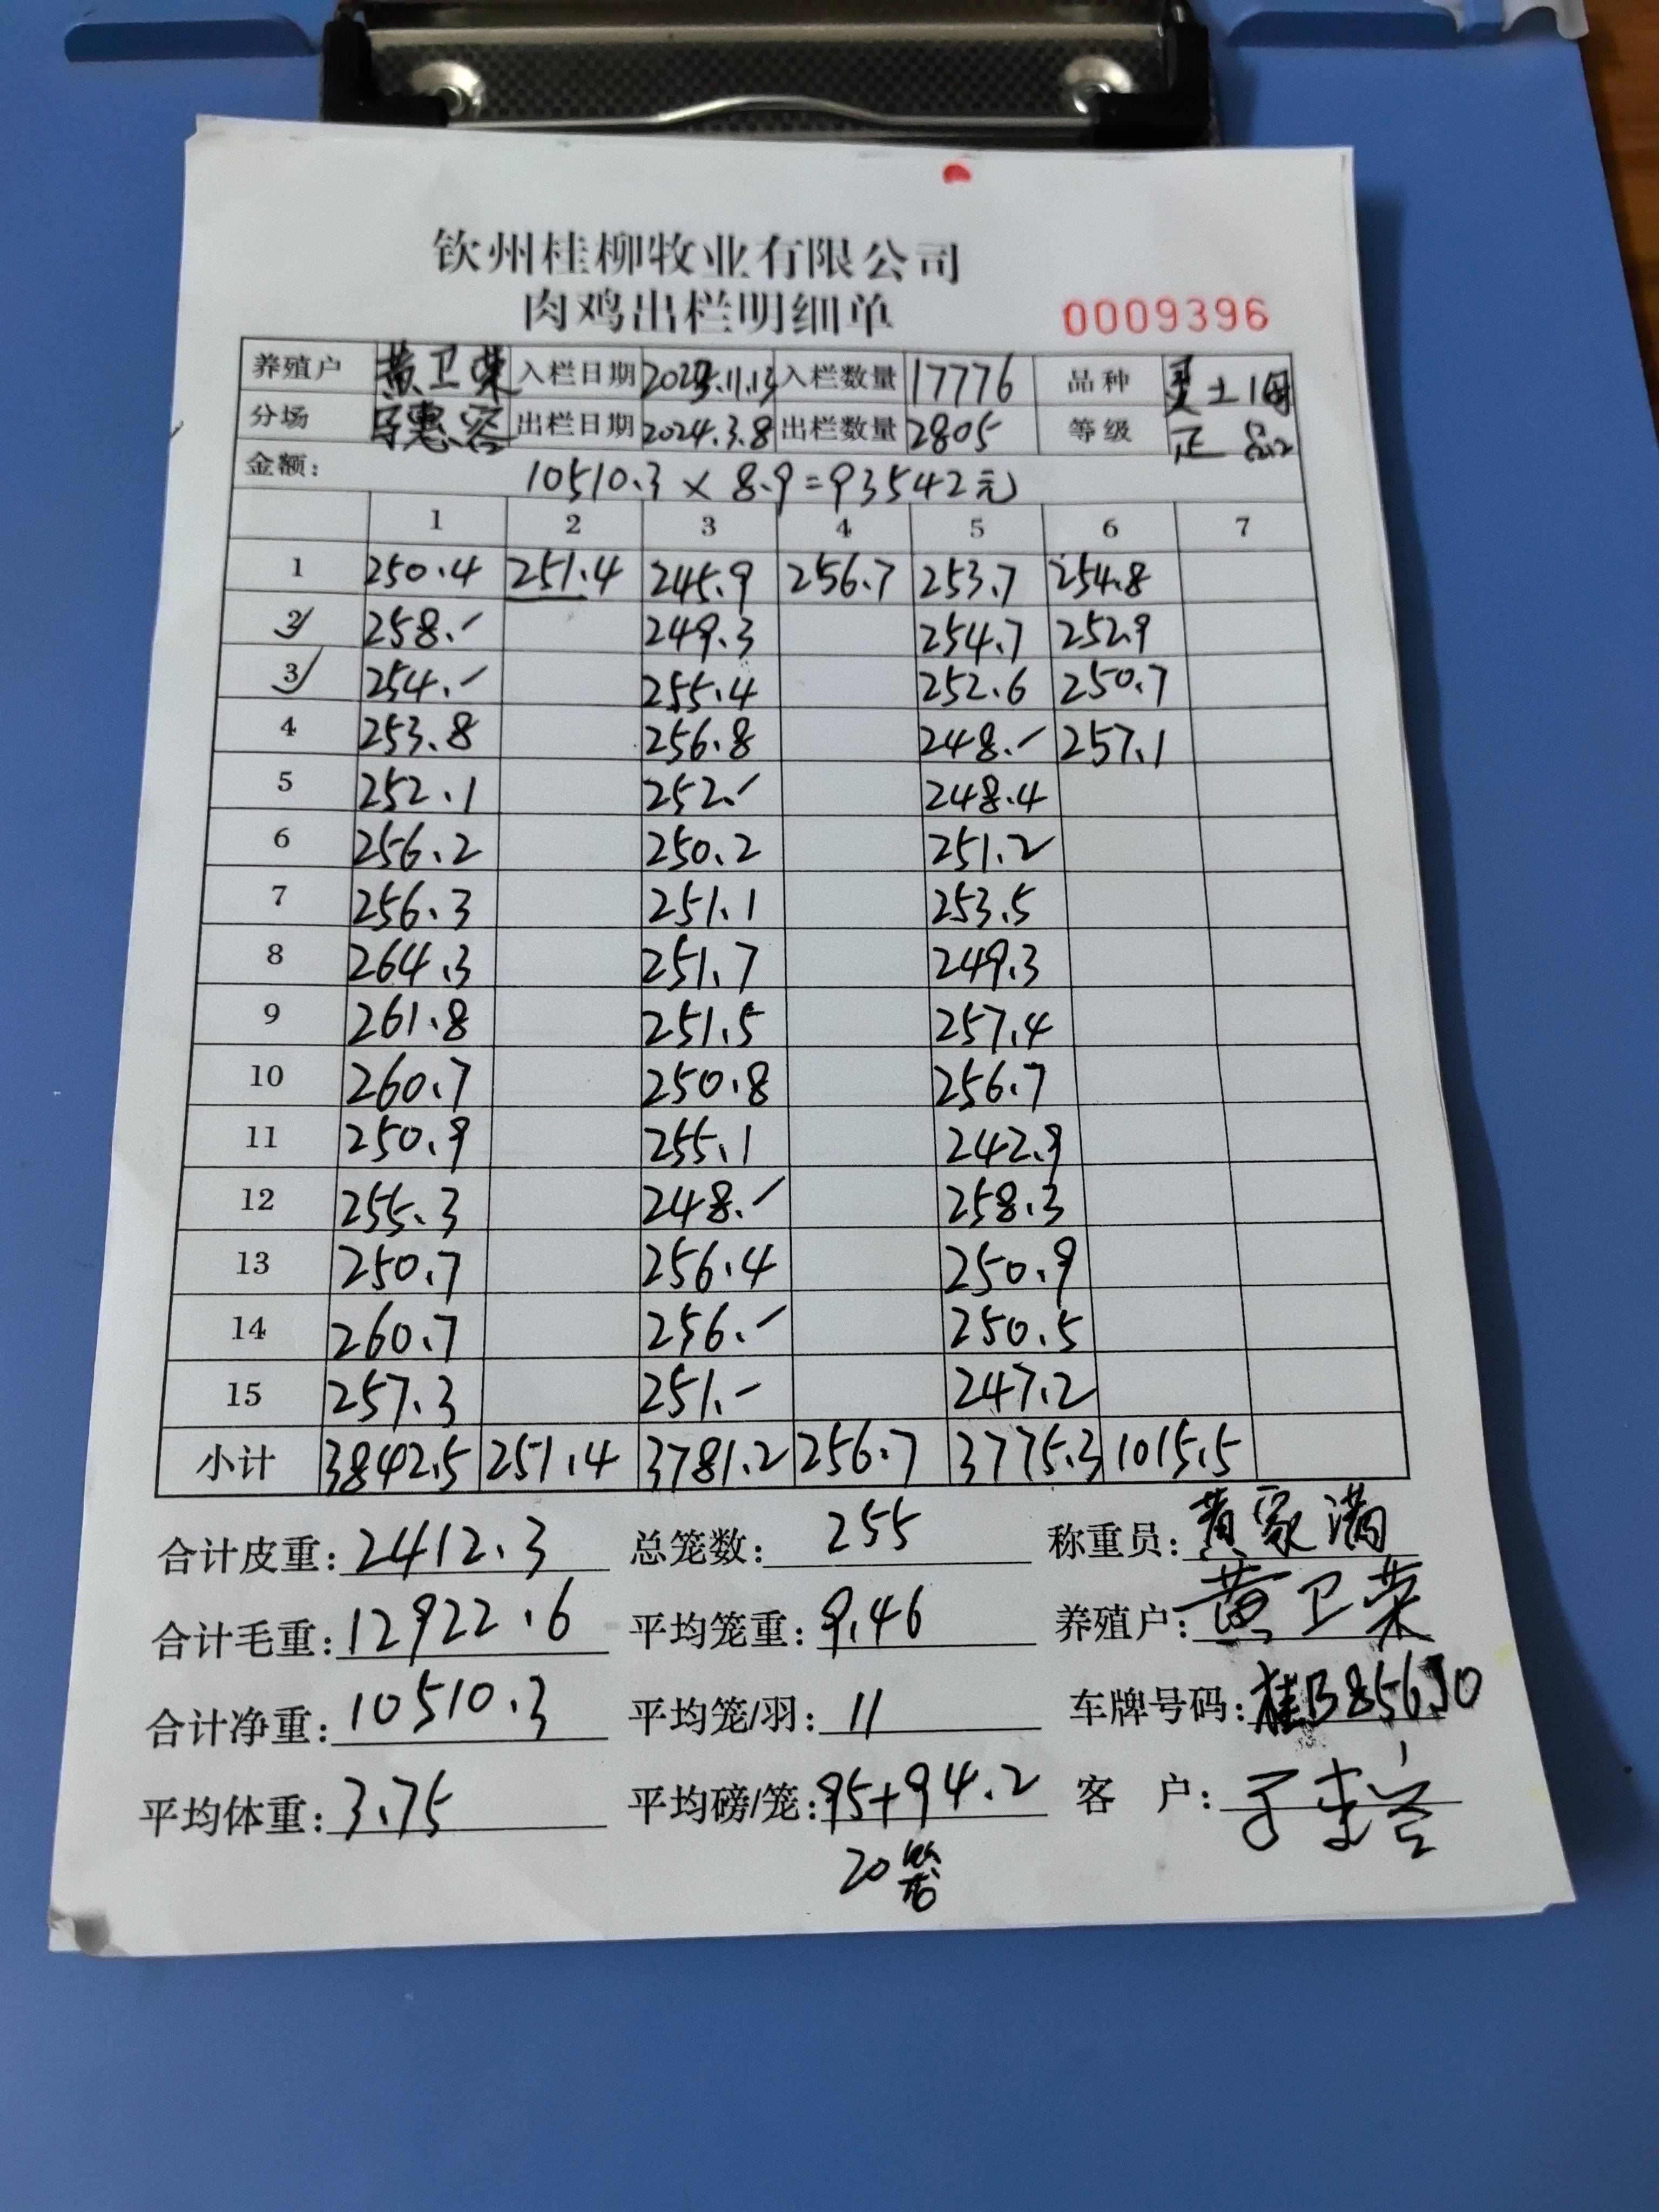 钦州桂柳牧业有限公司
肉鸡出栏明细单 0009396
养殖户 黄卫荣 入栏日期 2023.11.13 入栏数量 17776 品种 土1母
分场 惠容 出栏日期 2024.3.8 出栏数量 2805 等级 正品
金额: 10510.3 × 8.9 = 93542元
1 2 3 4 5 6 7
1 250.4 251.4 245.9 256.7 253.7 254.8
2 258.- 249.3 254.7 252.9
3 254.- 255.4 252.6 250.7
4 253.8 256.8 248.- 257.1
5 252.1 252.- 248.4
6 256.2 250.2 251.2
7 256.3 251.1 253.5
8 264.3 251.7 249.3
9 261.8 251.5 257.4
10 260.7 250.8 256.7
11 250.9 255.1 242.9
12 255.3 248.- 258.3
13 250.7 256.4 250.9
14 260.7 256.- 250.5
15 257.3 251.- 247.2
小计 3842.5 251.4 3781.2 256.7 3775.3 1015.5
合计皮重: 2412.3 总笼数: 255 称重员: 黄家满
合计毛重: 12922.6 平均笼重: 9.46 养殖户: 黄卫荣
合计净重: 10510.3 平均笼/羽: 11 车牌号码: 桂B856J0
平均体重: 3.75 平均磅/笼: 95+94.2 客户:
20笼